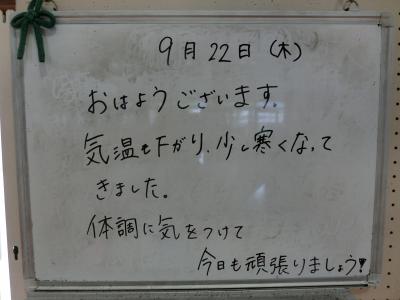 9月22日(木)
おはようございます。
気温も下がり、少し寒くなって
きました。
体調に気をつけて
今日も頑張りましょう!